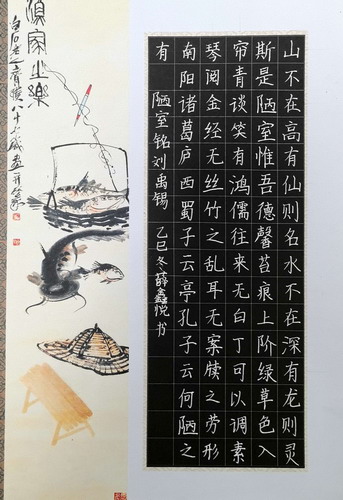 山不在高有仙则名水不在深有龙则灵
斯是陋室惟吾德馨苔痕上阶绿草色入
帘青谈笑有鸿儒往来无白丁可以调素
琴阅金经无丝竹之乱耳无案牍之劳形
南阳诸葛庐西蜀子云亭孔子云何陋之
有 陋室铭刘禹锡 乙巳冬薛鑫悦书
漁家之樂
白石老人齊璜八十六歲畫并篆